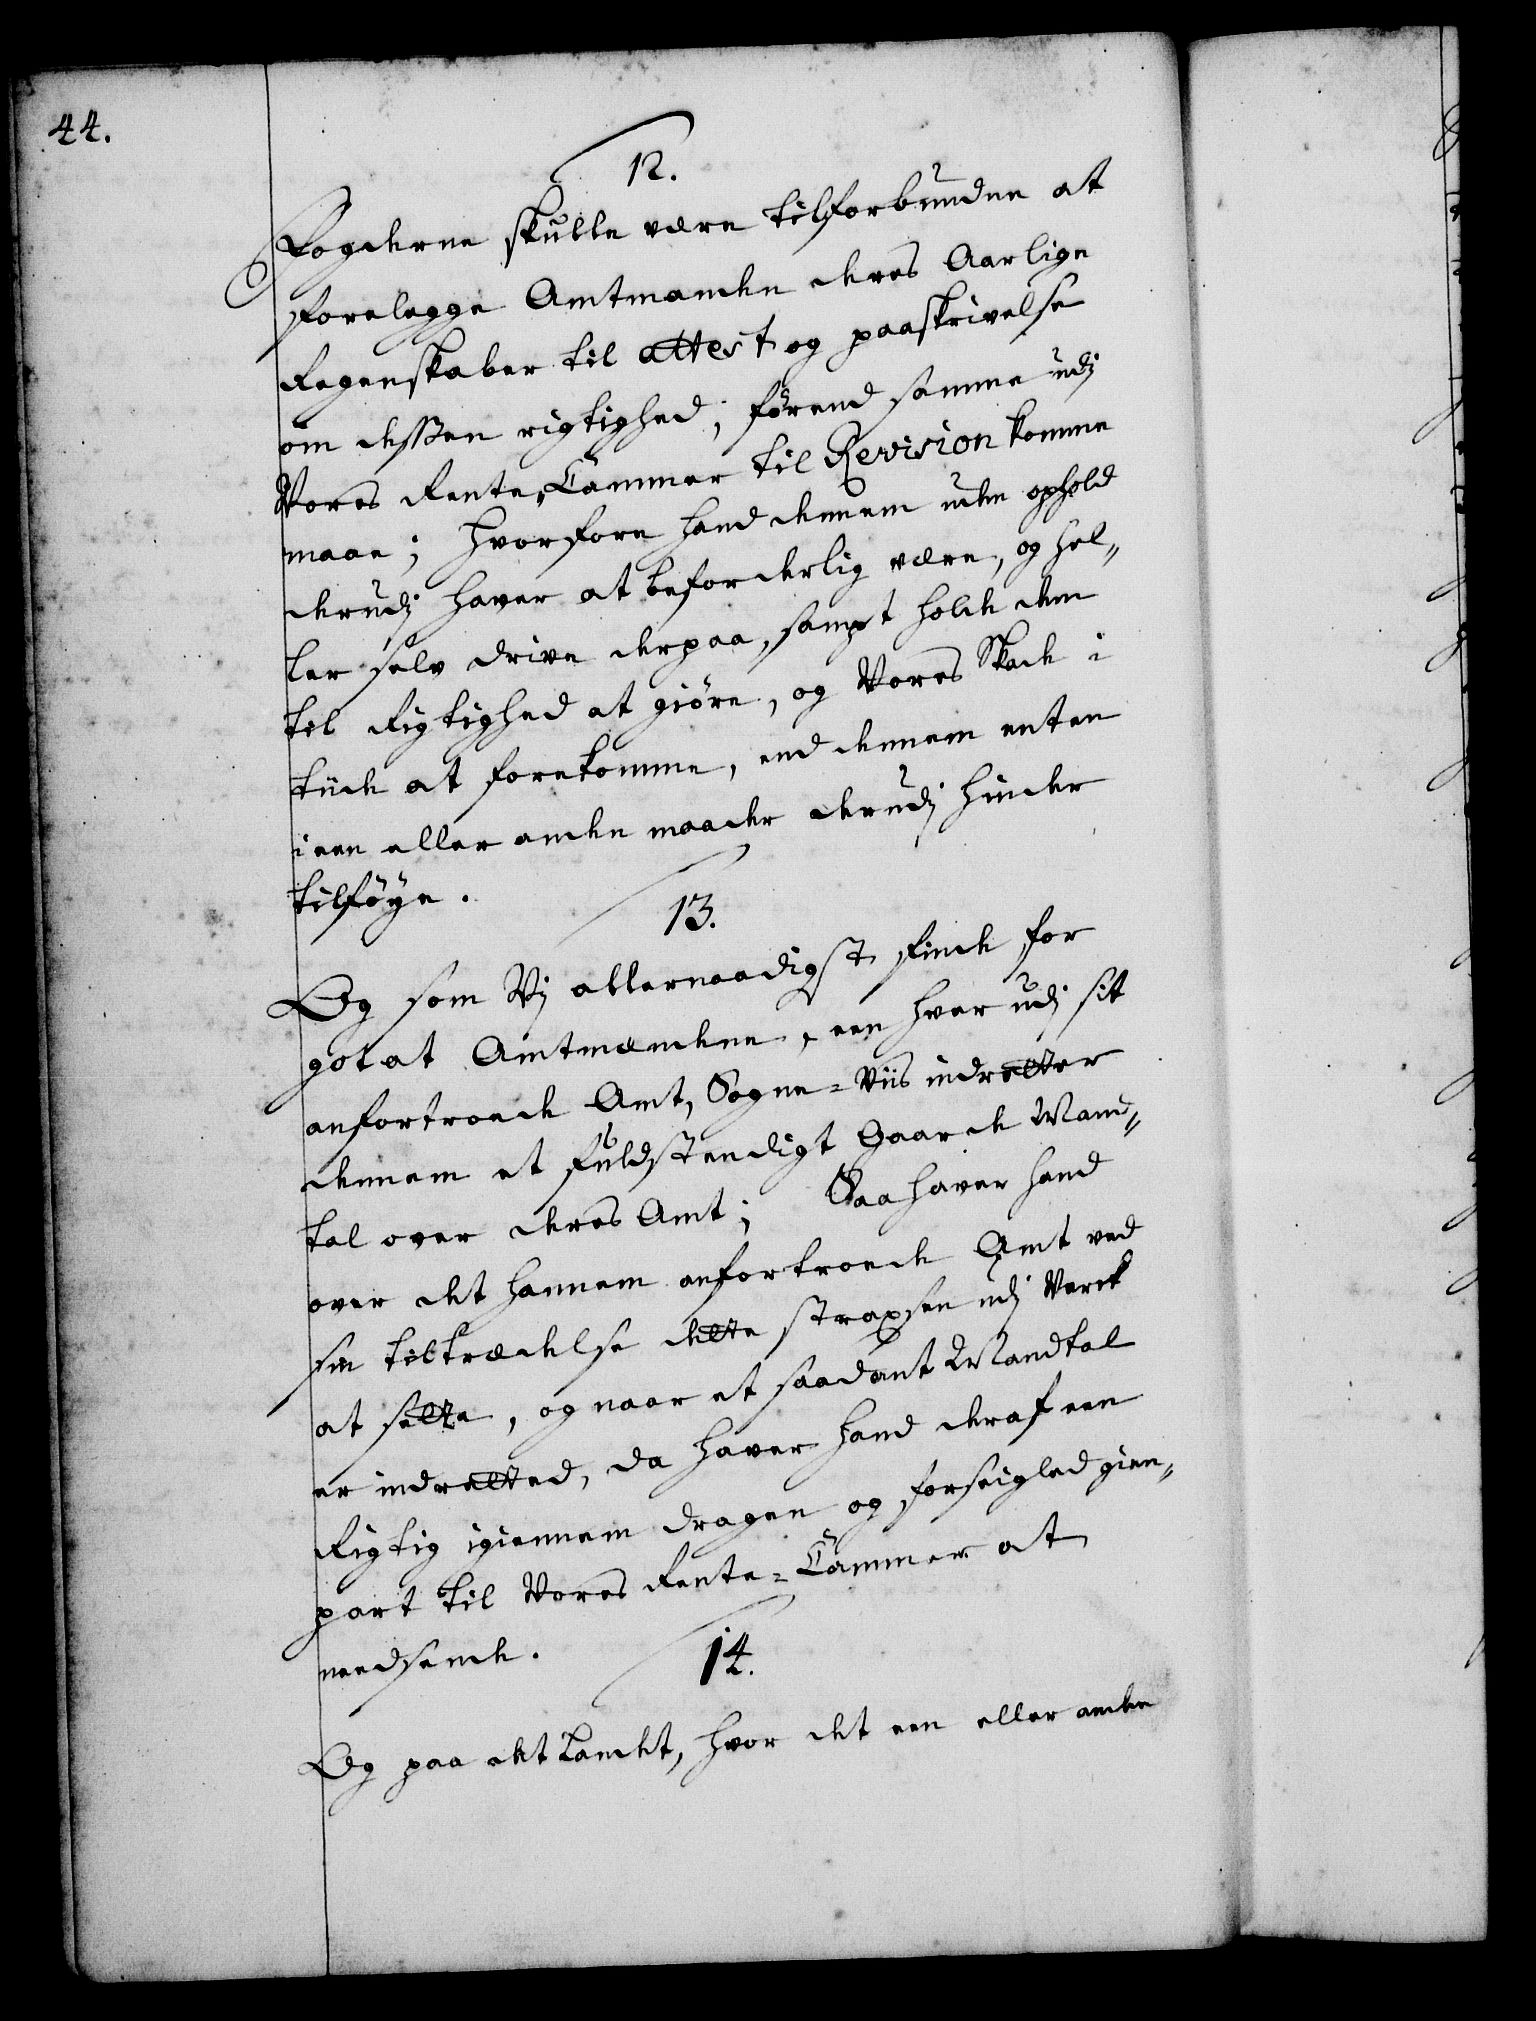 44.
12.
Fogderne skulle være tilforbunden at
forelegge Amtmanden deres Aarlige
Regenskaber til attest og paaskrivelse
om dessen rigtighed, førend samme udj
Vores Rente-Cammer til Revision komme
maae; hvorfore hand dennem uden ophold
derudj haver at beforderlig være, og hel-
ler selv drive derpaa, sampt holde dem
til Rigtighed at giøre, og Vores Skade i
tiide at forekomme, end dennem enten
i een eller anden maader derudj hinder
tilføye.
13.
Og som Vj allernaadigst finde for
got at Amtmændene, een hver udj sit
anfortroede Amt, Sogne-Viis indretter
dennem et fuldstendigt Gaarde Mand-
tal over deres Amt; Saa haver hand
over det hannem anfortroede Amt ved
sin tiltrædelse dette strapsen udj Verck
at sette, og naar et saadant Mandtal
er indretted, da haver hand deraf een
Rigtig igiennem dragen og forseigled gien-
part til Vores Rente-Cammer at
needsende.
14.
Og paa det Landet, hvor det een eller anden